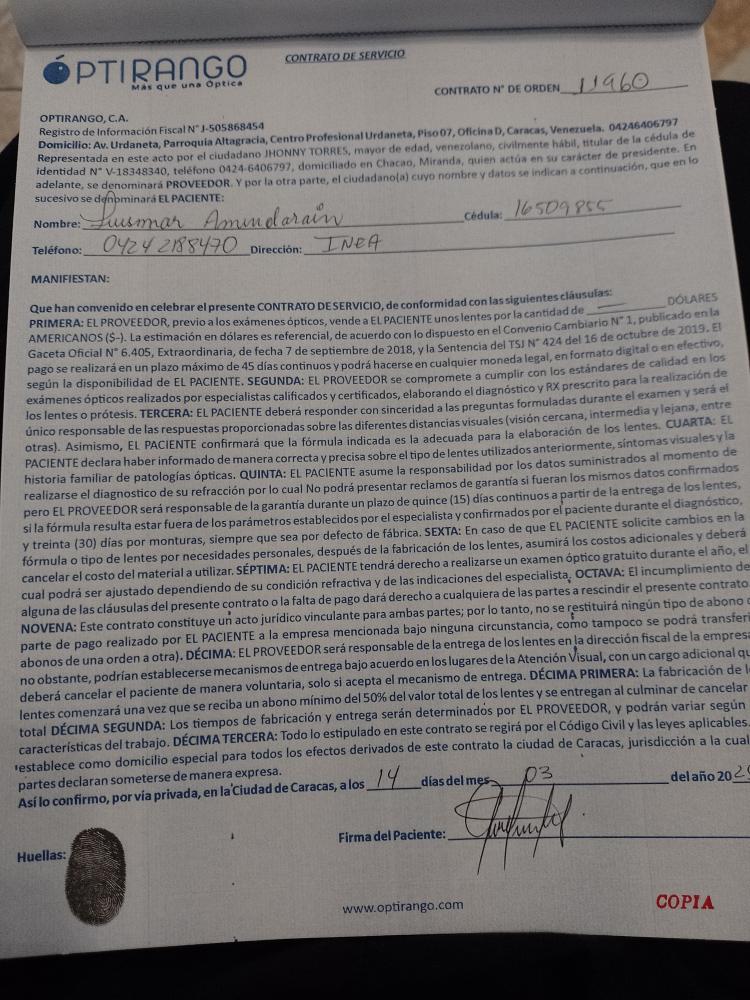 ÓPTIRANGO
Más que una Óptica
CONTRATO DE SERVICIO
CONTRATO N° DE ORDEN 11960
OPTIRANGO, C.A.
Registro de Información Fiscal N° J-505868454
Domicilio: Av. Urdaneta, Parroquia Altagracia, Centro Profesional Urdaneta, Piso 07, Oficina D, Caracas, Venezuela. 04246406797
Representada en este acto por el ciudadano JHONNY TORRES, mayor de edad, venezolano, civilmente hábil, titular de la cédula de
identidad N° V-18348340, teléfono 0424-6406797, domiciliado en Chacao, Miranda, quien actúa en su carácter de presidente. En
adelante, se denominará PROVEEDOR. Y por la otra parte, el ciudadano(a) cuyo nombre y datos se indican a continuación, que en lo
sucesivo se denominará EL PACIENTE:
Nombre: Luismar Amundarain Cédula: 16509855
Teléfono: 04242188470 Dirección: INEA
MANIFIESTAN:
Que han convenido en celebrar el presente CONTRATO DE SERVICIO, de conformidad con las siguientes cláusulas:
PRIMERA: EL PROVEEDOR, previo a los exámenes ópticos, vende a EL PACIENTE unos lentes por la cantidad de DÓLARES
AMERICANOS ($-). La estimación en dólares es referencial, de acuerdo con lo dispuesto en el Convenio Cambiario N° 1, publicado en la
Gaceta Oficial N° 6.405, Extraordinaria, de fecha 7 de septiembre de 2018, y la Sentencia del TSJ N° 424 del 16 de octubre de 2019. El
pago se realizará en un plazo máximo de 45 días continuos y podrá hacerse en cualquier moneda legal, en formato digital o en efectivo,
según la disponibilidad de EL PACIENTE. SEGUNDA: EL PROVEEDOR se compromete a cumplir con los estándares de calidad en los
exámenes ópticos realizados por especialistas calificados y certificados, elaborando el diagnóstico y RX prescrito para la realización de
los lentes o prótesis. TERCERA: EL PACIENTE deberá responder con sinceridad a las preguntas formuladas durante el examen y será el
único responsable de las respuestas proporcionadas sobre las diferentes distancias visuales (visión cercana, intermedia y lejana, entre
otras). Asimismo, EL PACIENTE confirmará que la fórmula indicada es la adecuada para la elaboración de los lentes. CUARTA: EL
PACIENTE declara haber informado de manera correcta y precisa sobre el tipo de lentes utilizados anteriormente, síntomas visuales y la
historia familiar de patologías ópticas. QUINTA: EL PACIENTE asume la responsabilidad por los datos suministrados al momento de
realizarse el diagnostico de su refracción por lo cual No podrá presentar reclamos de garantía si fueran los mismos datos confirmados
pero EL PROVEEDOR será responsable de la garantía durante un plazo de quince (15) días continuos a partir de la entrega de los lentes,
si la fórmula resulta estar fuera de los parámetros establecidos por el especialista y confirmados por el paciente durante el diagnóstico,
y treinta (30) días por monturas, siempre que sea por defecto de fábrica. SEXTA: En caso de que EL PACIENTE solicite cambios en la
fórmula o tipo de lentes por necesidades personales, después de la fabricación de los lentes, asumirá los costos adicionales y deberá
cancelar el costo del material a utilizar. SÉPTIMA: EL PACIENTE tendrá derecho a realizarse un examen óptico gratuito durante el año, el
cual podrá ser ajustado dependiendo de su condición refractiva y de las indicaciones del especialista. OCTAVA: El incumplimiento de
alguna de las cláusulas del presente contrato o la falta de pago dará derecho a cualquiera de las partes a rescindir el presente contrato
NOVENA: Este contrato constituye un acto jurídico vinculante para ambas partes; por lo tanto, no se restituirá ningún tipo de abono o
parte de pago realizado por EL PACIENTE a la empresa mencionada bajo ninguna circunstancia, como tampoco se podrá transferi
abonos de una orden a otra). DÉCIMA: EL PROVEEDOR será responsable de la entrega de los lentes en la dirección fiscal de la empresa
no obstante, podrían establecerse mecanismos de entrega bajo acuerdo en los lugares de la Atención Visual, con un cargo adicional qu
deberá cancelar el paciente de manera voluntaria, solo si acepta el mecanismo de entrega. DÉCIMA PRIMERA: La fabricación de l
lentes comenzará una vez que se reciba un abono mínimo del 50% del valor total de los lentes y se entregan al culminar de cancelar
total DÉCIMA SEGUNDA: Los tiempos de fabricación y entrega serán determinados por EL PROVEEDOR, y podrán variar según
características del trabajo. DÉCIMA TERCERA: Todo lo estipulado en este contrato se regirá por el Código Civil y las leyes aplicables.
establece como domicilio especial para todos los efectos derivados de este contrato la ciudad de Caracas, jurisdicción a la cual
partes declaran someterse de manera expresa.
Así lo confirmo, por vía privada, en la Ciudad de Caracas, a los 14 días del mes 03 del año 202
Firma del Paciente:
Huellas:
www.optirango.com
COPIA